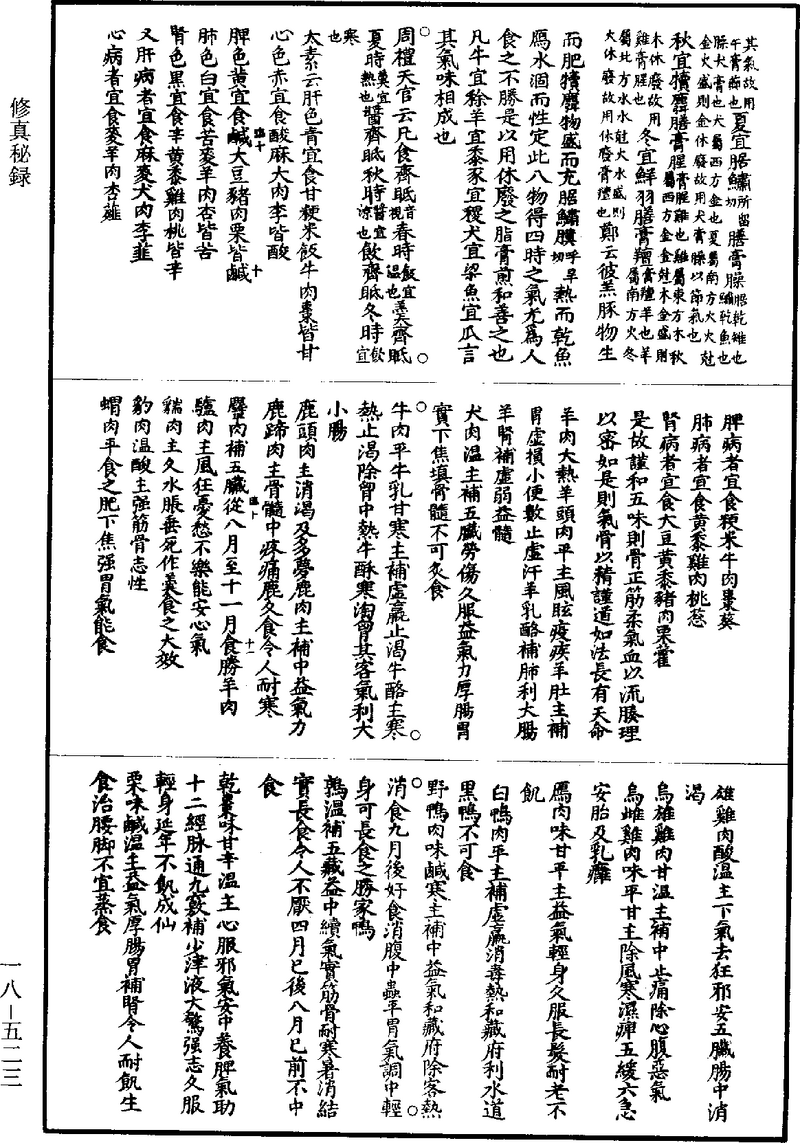 修真秘録
其氣故用
午膏薌也夏宜腒鱐所留切膳膏臊腒乾雉也鱐乾魚也
臊犬膏也犬屬西方金也夏屬南方火火尅
金火盛則金休廢故用犬膏臊以節氣也
秋宜犢麛膳膏腥膏腥雞也雞屬東方木秋屬西方金金尅木金盛則
木休廢故用雞膏腥也冬宜鮮羽膳膏羶膏羶羊也羊屬南方火冬
屬北方水水尅火水盛則火休廢故用休廢膏羶也鄭云彼羔豚物生
而肥犢麛物盛而充腒鱐膴呼旱切熱而乾魚
鴈水涸而性定此八物得四時之氣尤爲人
食之不勝是以用休廢之脂膏煎和善之也
凡牛宜稌羊宜黍豕宜稷犬宜粱魚宜瓜言
其氣味相成也
○周禮天官云凡食齊眡音視春時飯宜溫也羹齊眡○
夏時羹宜熱也醬齊眡秋時醬宜涼也飲齊眡冬時飲宜
寒也
太素云肝色青宜食甘粳米飯牛肉棗皆甘
心色赤宜食酸麻犬肉李皆酸
脾色黄宜食鹹大豆豬肉栗皆鹹
肺色白宜食苦麥羊肉杏皆苦
腎色黑宜食辛黄黍雞肉桃皆辛
又肝病者宜食麻麥犬肉李韮
心病者宜食麥羊肉杏薤
脾病者宜食粳米牛肉棗葵
肺病者宜食黄黍雞肉桃葱
腎病者宜食大豆黄黍豬肉栗藿
是故謹和五味則骨正筋柔氣血以流腠理
以密如是則氣骨以精謹道如法長有天命
羊肉大熱羊頭肉平主風眩疫疾羊肚主補
胃虛損小便數止虛汗羊乳酪補肺利大腸
羊腎補虛弱益髓
犬肉温主補五臟勞傷久服益氣力厚腸胃
實下焦填骨髓不可炙食
○牛肉平牛乳甘寒主補虛羸止渴牛酪主寒○
熱止渴除胷中熱牛酥寒淘胷其客氣利大
小腸
鹿頭肉主消渴及多夢鹿肉主補中益氣力
鹿蹄肉主骨髓中疼痛鹿久食令人耐寒
麞肉補五臟從八月至十一月食勝羊肉
驢肉主風狂憂愁不樂能安心氣
貒肉主久水脹垂死作羹食之大效
豹肉温酸主强筋骨志性
蝟肉平食之肥下焦强胃氣能食
雄雞肉酸温主下氣去狂邪安五臟腸中消
渴
烏雄雞肉甘温主補中止痛除心腹惡氣
烏雌雞肉味平甘主除風寒濕痺五緩六急
安胎及乳癰
鴈肉味甘平主益氣輕身久服長髮耐老不
飢
白鴨肉平主補虛羸消毒熱和藏府利水道
黑鴨不可食
野鴨肉味鹹寒主補中益氣和藏府除客熱
○消食九月後好食消腹中蟲平胃氣調中輕○
身可長食之勝家鴨
鶉温補五藏益中續氣實筋骨耐寒暑消結
實長食令人不厭四月已後八月已前不中
食
乾棗味甘辛温主心服邪氣安中養脾氣助
十二經脉通九竅補少津液大驚强志久服
輕身延年不飢成仙
栗味鹹温主益氣厚腸胃補腎令人耐飢生
食治腰脚不宜蒸食
一八－五二三